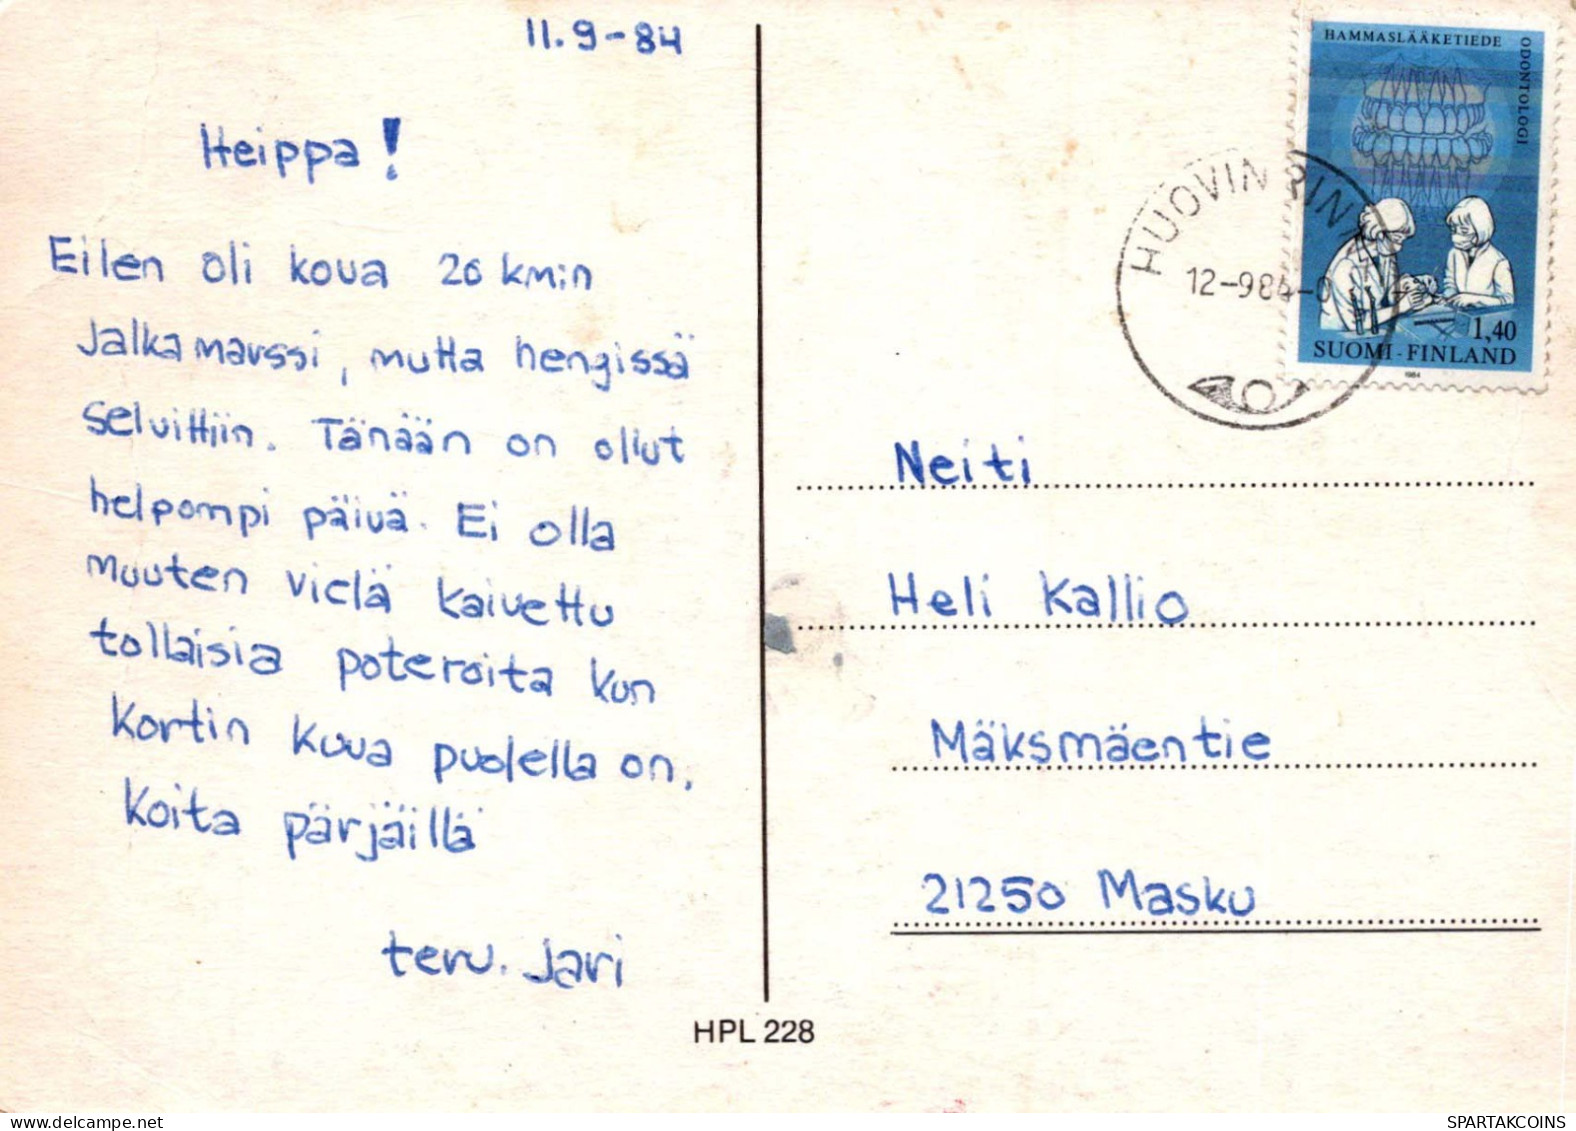 11.9-84
Heippa!
Eilen oli kova 20 kmin
Jalkamarssi, mutta hengissä
selvittiin. Tänään on ollut
helpompi päivä. Ei olla
muuten vielä kaivettu
tollaisia poteroita kun
kortin kuva puolella on,
Koita pärjäillä
terv. Jari
HPL 228
HAMMASLÄÄKETIEDE
ODONTOLOGI
1,40
SUOMI-FINLAND
1984
HUOVINRIN
12-984-0
Neiti
Heli Kallio
Mäksmäentie
21250 Masku
www.delcampe.net
SPARTAKCOINS